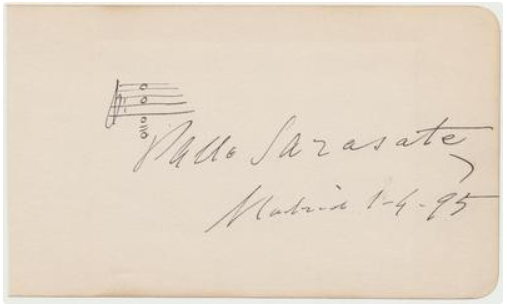 Pablo Sarasate
Madrid 1-4-95